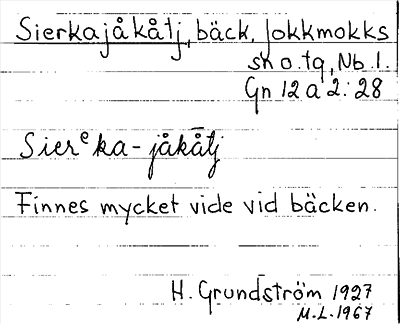 Sierkajåkåtj, bäck, Jokkmokks
sn o. tg, Nb. l.
Gn 12 a 2: 28
Sierᵉka-jåkå̄tj
Finnes mycket vide vid bäcken.
H. Grundström 1927
M.L. 1967